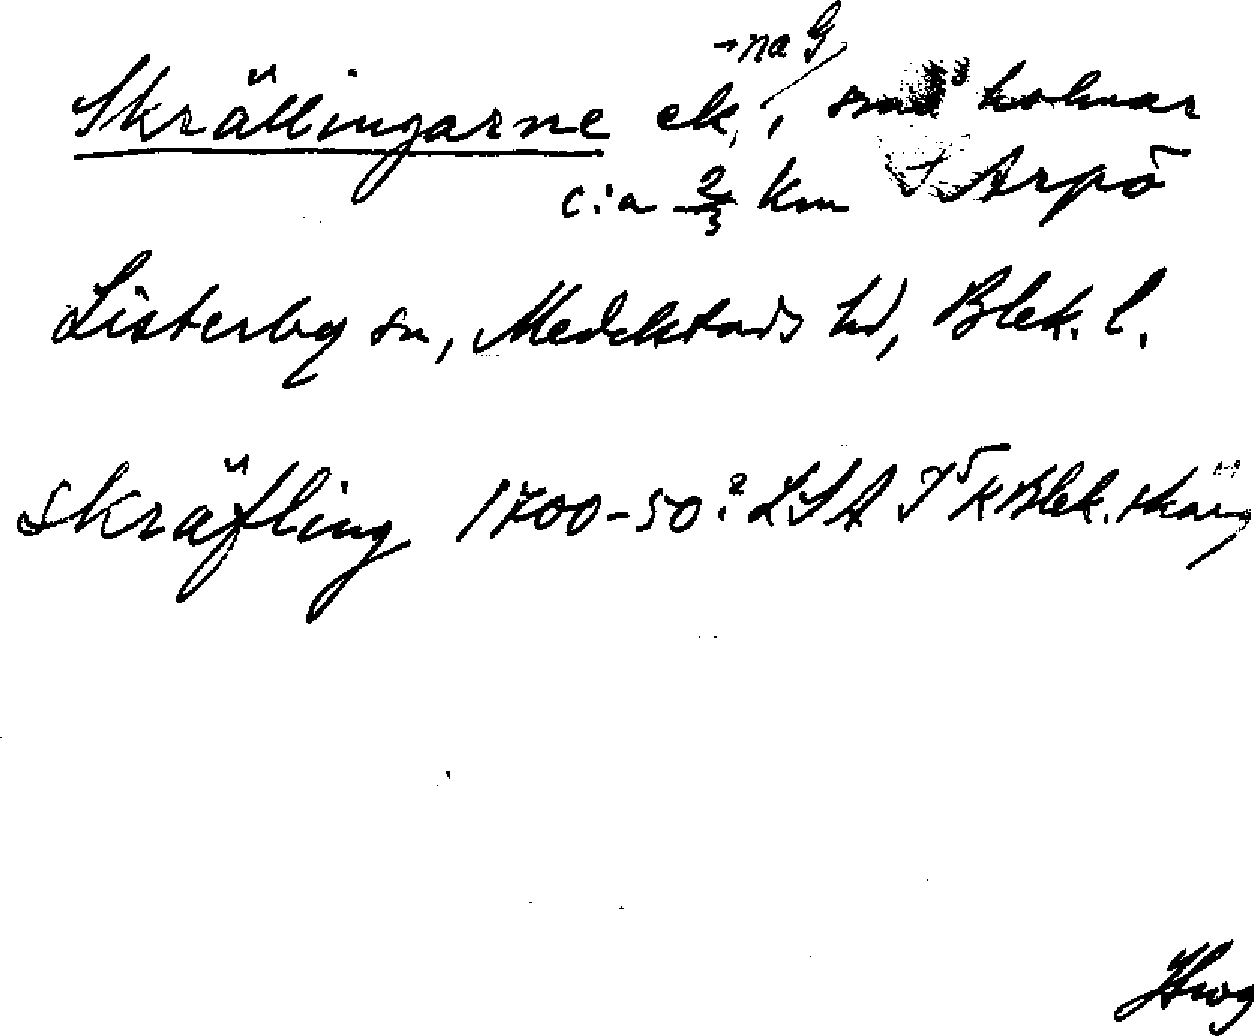 -na G
Skrällingarne ek., små holmar
c:a 2/3 km S Arpö
Listerby sn, Medelstads hd, Blek. l.
skräfling 1700-50? LSA Blek. skärg